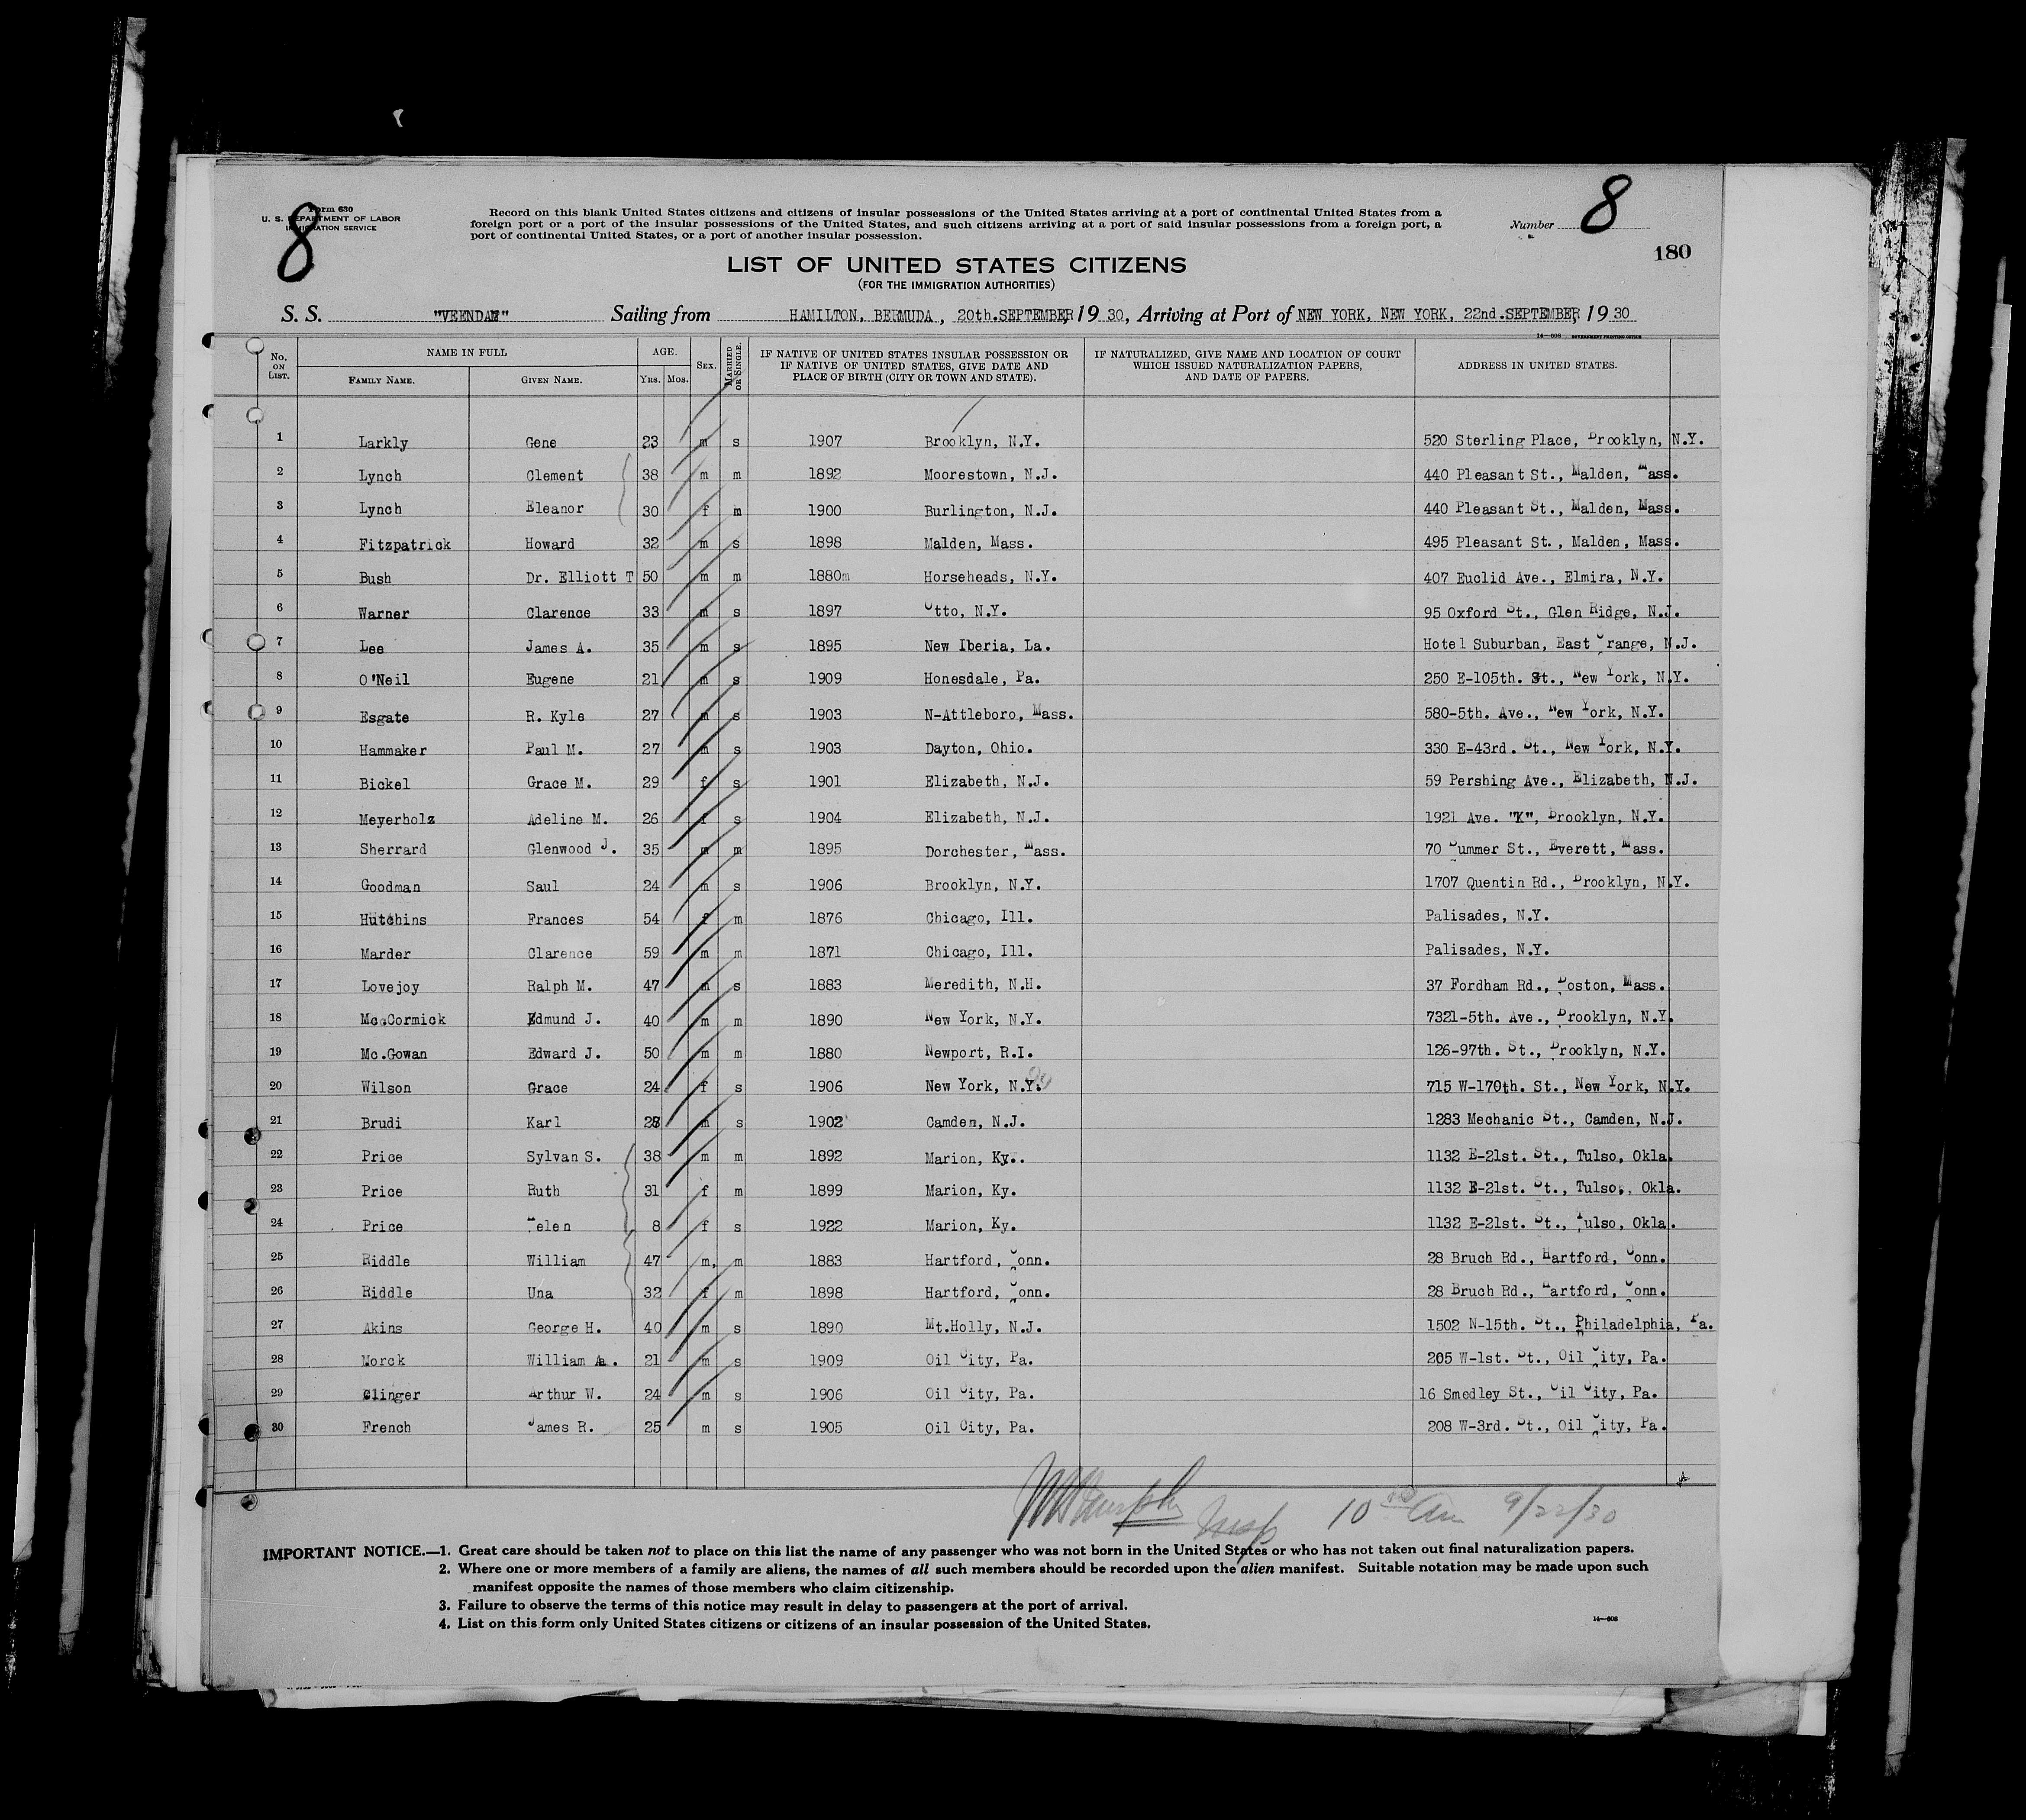 8
Form 630
U. S. DEPARTMENT OF LABOR
IMMIGRATION SERVICE
Record on this blank United States citizens and citizens of insular possessions of the United States arriving at a port of continental United States from a
foreign port or a port of the insular possessions of the United States, and such citizens arriving at a port of said insular possessions from a foreign port, a
port of continental United States, or a port of another insular possession.
Number 8
180
LIST OF UNITED STATES CITIZENS
(FOR THE IMMIGRATION AUTHORITIES)
S. S. "VEENDAM" Sailing from HAMILTON, BERMUDA, 20th.SEPTEMBER, 19 30, Arriving at Port of NEW YORK, NEW YORK, 22nd.SEPTEMBER, 19 30
14-608 GOVERNMENT PRINTING OFFICE
No. ON LIST. NAME IN FULL FAMILY NAME. GIVEN NAME. AGE. YRS. MOS. SEX. MARRIED OR SINGLE. IF NATIVE OF UNITED STATES INSULAR POSSESSION OR IF NATIVE OF UNITED STATES, GIVE DATE AND PLACE OF BIRTH (CITY OR TOWN AND STATE). IF NATURALIZED, GIVE NAME AND LOCATION OF COURT WHICH ISSUED NATURALIZATION PAPERS, AND DATE OF PAPERS. ADDRESS IN UNITED STATES.
1 Larkly Gene 23 m s 1907 Brooklyn, N.Y. 520 Sterling Place, Brooklyn, N.Y.
2 Lynch Clement 38 m m 1892 Moorestown, N.J. 440 Pleasant St., Malden, Mass.
3 Lynch Eleanor 30 f m 1900 Burlington, N.J. 440 Pleasant St., Malden, Mass.
4 Fitzpatrick Howard 32 m s 1898 Malden, Mass. 495 Pleasant St., Malden, Mass.
5 Bush Dr. Elliott T 50 m m 1880m Horseheads, N.Y. 407 Euclid Ave., Elmira, N.Y.
6 Warner Clarence 33 m s 1897 Otto, N.Y. 95 Oxford St., Glen Ridge, N.J.
7 Lee James A. 35 m s 1895 New Iberia, La. Hotel Suburban, East Orange, N.J.
8 O'Neil Eugene 21 m s 1909 Honesdale, Pa. 250 E-105th. St., New York, N.Y.
9 Esgate R. Kyle 27 m s 1903 N-Attleboro, Mass. 580-5th. Ave., New York, N.Y.
10 Hammaker Paul M. 27 m s 1903 Dayton, Ohio. 330 E-43rd. St., New York, N.Y.
11 Bickel Grace M. 29 f s 1901 Elizabeth, N.J. 59 Pershing Ave., Elizabeth, N.J.
12 Meyerholz Adeline M. 26 f s 1904 Elizabeth, N.J. 1921 Ave. "K", Brooklyn, N.Y.
13 Sherrard Glenwood J. 35 m m 1895 Dorchester, Mass. 70 Summer St., Everett, Mass.
14 Goodman Saul 24 m s 1906 Brooklyn, N.Y. 1707 Quentin Rd., Brooklyn, N.Y.
15 Hutchins Frances 54 f m 1876 Chicago, Ill. Palisades, N.Y.
16 Marder Clarence 59 m m 1871 Chicago, Ill. Palisades, N.Y.
17 Lovejoy Ralph M. 47 m s 1883 Meredith, N.H. 37 Fordham Rd., Boston, Mass.
18 Mc.Cormick Edmund J. 40 m m 1890 New York, N.Y. 7321-5th. Ave., Brooklyn, N.Y.
19 Mc.Gowan Edward J. 50 m m 1880 Newport, R.I. 126-97th. St., Brooklyn, N.Y.
20 Wilson Grace 24 f s 1906 New York, N.Y. 715 W-170th. St., New York, N.Y.
21 Brudi Karl 28 m s 1902 Camden, N.J. 1283 Mechanic St., Camden, N.J.
22 Price Sylvan S. 38 m m 1892 Marion, Ky.. 1132 E-21st. St., Tulso, Okla.
23 Price Ruth 31 f m 1899 Marion, Ky. 1132 E-21st. St., Tulso, Okla.
24 Price Helen 8 f s 1922 Marion, Ky. 1132 E-21st. St., Tulso, Okla.
25 Riddle William 47 m, m 1883 Hartford, Conn. 28 Bruch Rd., Hartford, Conn.
26 Riddle Una 32 f m 1898 Hartford, Conn. 28 Bruch Rd., Hartford, Conn.
27 Akins George H. 40 m s 1890 Mt.Holly, N.J. 1502 N-15th. St., Philadelphia, Pa.
28 Morck William A. 21 m s 1909 Oil City, Pa. 205 W-1st. St., Oil City, Pa.
29 Clinger Arthur W. 24 m s 1906 Oil City, Pa. 16 Smedley St., Oil City, Pa.
30 French James R. 25 m s 1905 Oil City, Pa. 208 W-3rd. St., Oil City, Pa.
Murphy Insp 10 am 9/22/30
IMPORTANT NOTICE.—1. Great care should be taken not to place on this list the name of any passenger who was not born in the United States or who has not taken out final naturalization papers.
2. Where one or more members of a family are aliens, the names of all such members should be recorded upon the alien manifest. Suitable notation may be made upon such
manifest opposite the names of those members who claim citizenship.
3. Failure to observe the terms of this notice may result in delay to passengers at the port of arrival.
4. List on this form only United States citizens or citizens of an insular possession of the United States.
14-608